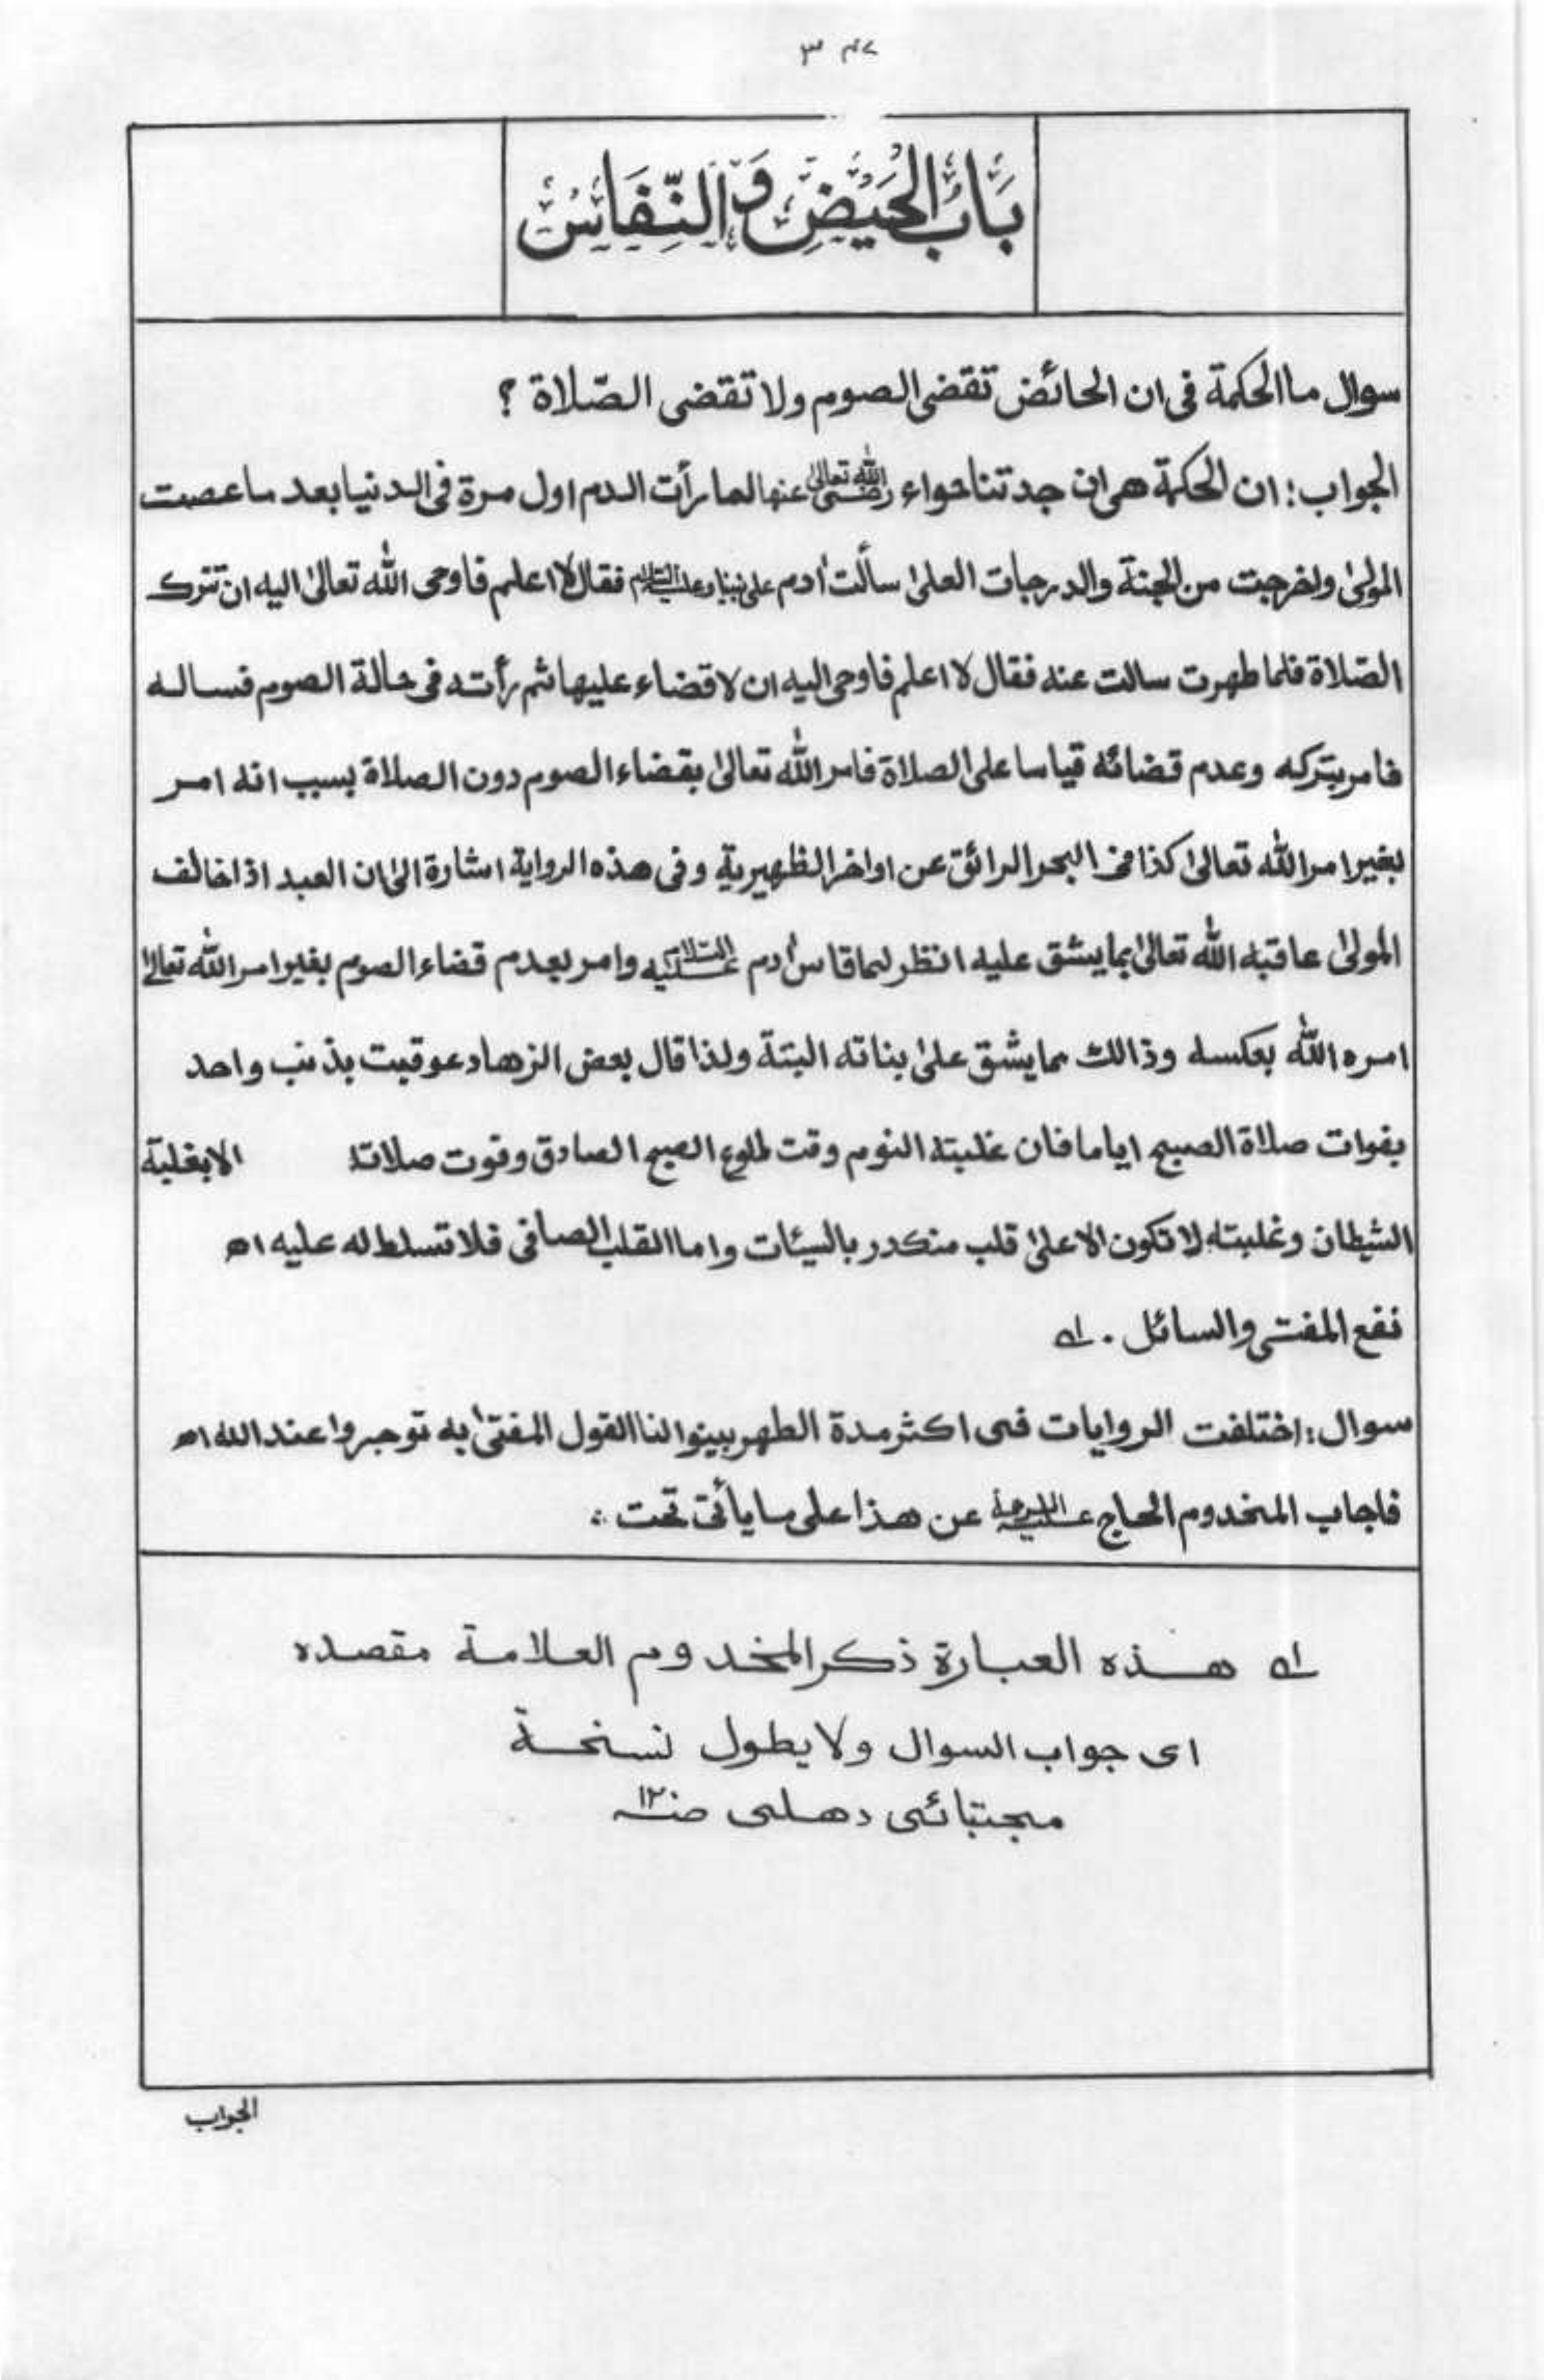 بَابُ الْحَيْضِ وَالنِّفَاسِ
سوال ما الحكمة فى ان الحائض تقضى الصوم ولا تقضى الصّلاة ؟
الجواب : ان الحكمة هى ان جدتنا حواء رضى الله تعالىٰ عنها لما رأت الدم اول مرة فى الدنيا بعد ما عصت
المولىٰ واخرجت من الجنة والدرجات العلىٰ سألت أدم على نبينا وعليه السلام فقال لا اعلم فاوحى الله تعالىٰ اليه ان تترك
الصّلاة فلما طهرت سالت عنه فقال لا اعلم فاوحى اليه ان لا قضاء عليها ثم رأته فى حالة الصوم فساله
فامر بتركه وعدم قضائه قياسا على الصلاة فامر الله تعالىٰ بقضاء الصوم دون الصلاة بسبب انه امر
بغير امر الله تعالىٰ كذا فى البحر الرائق عن اواخر الظهيرية وفى هذه الرواية اشارة الىٰ ان العبد اذا خالف
المولىٰ عاقبه الله تعالىٰ بما يشق عليه انظر لما قاس أدم عليه السلام وامر بعدم قضاء الصوم بغير امر الله تعالىٰ
امره الله بعكسه وذالك مما يشق علىٰ بناته البتة ولذا قال بعض الزهاد عوقبت بذنب واحد
بفوات صلاة الصبح اياما فان غلبته النوم وقت طلوع الصبح الصادق وفوت صلاته الا بغلبة
الشيطان وغلبته لا تكون الا علىٰ قلب منكدر بالسيئات واما القلب الصافى فلا تسلط له عليه اھ
نفع المفتى والسائل . لہ
سوال : اختلفت الروايات فى اكثر مدة الطهر بينوا لنا القول المفتىٰ به توجروا عند الله اھ
فاجاب المخدوم الحاج عليه الرحمة عن هذا على ما يأتى تحت :
لہ هذه العبارة ذكر المخدوم العلامة مقصده
اى جواب السوال ولا يطول نسخة
مجتبائى دهلى ١٢
الجواب